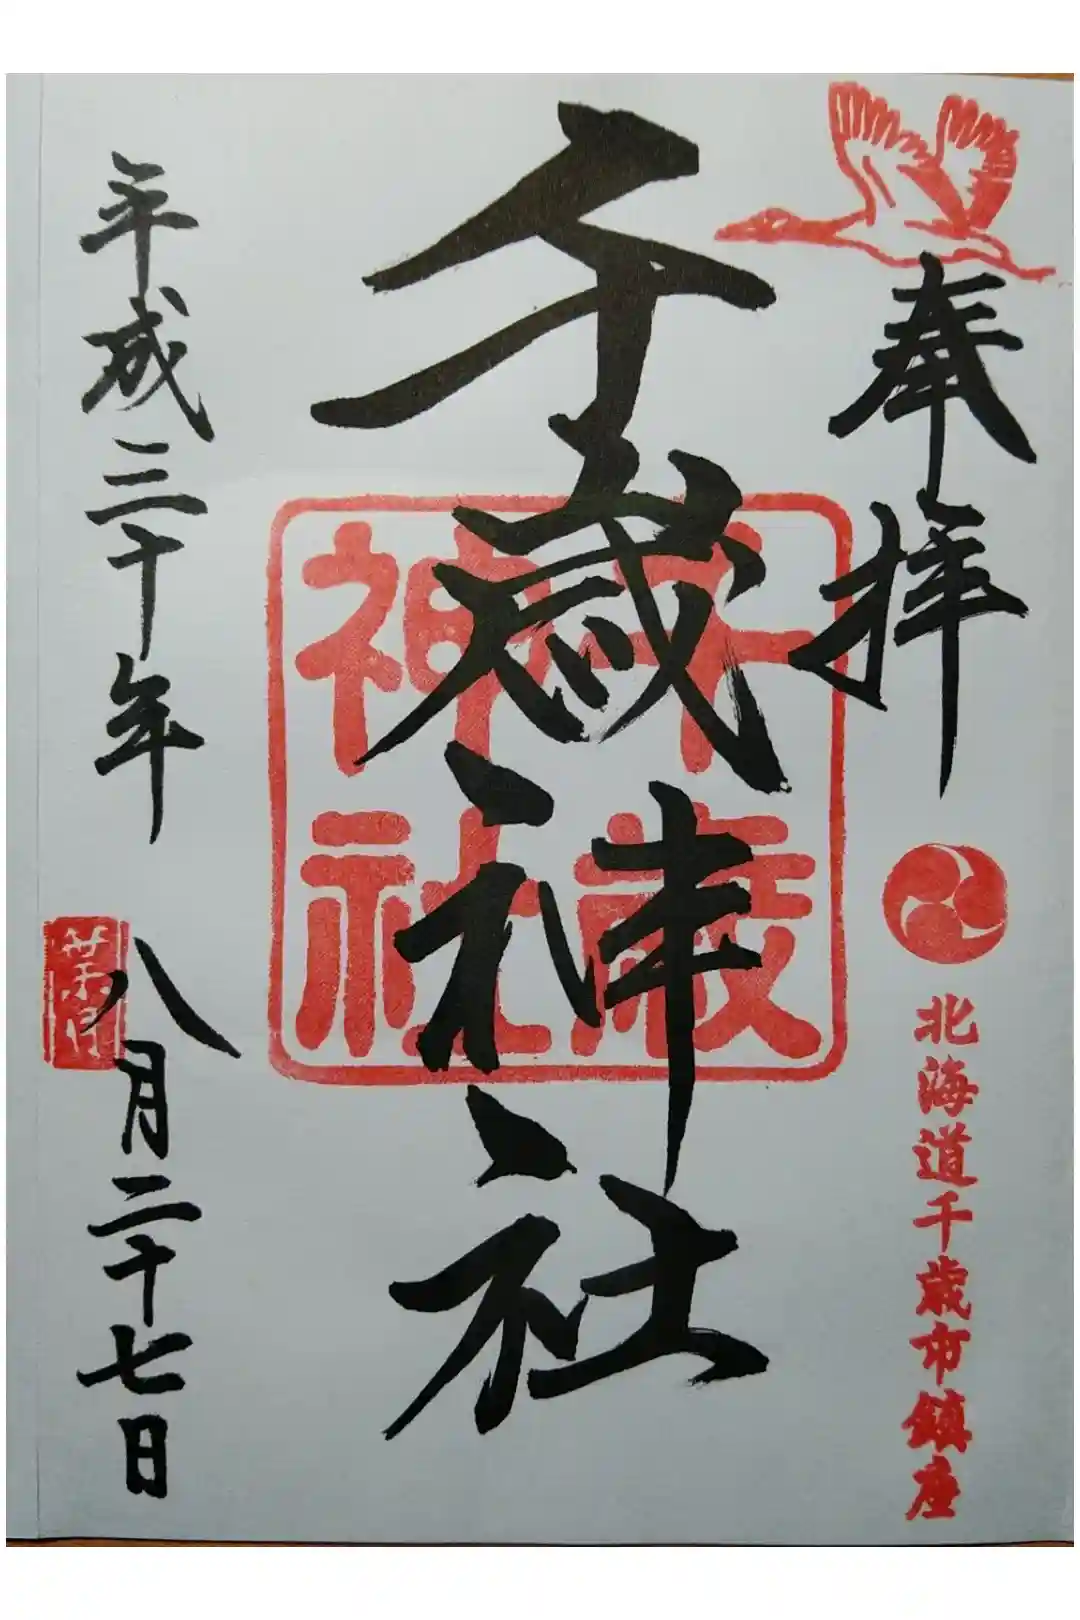 奉拝
北海道千歳市鎮座
千歳神社
千歳
神社
平成三十年
八月二十七日
葉月